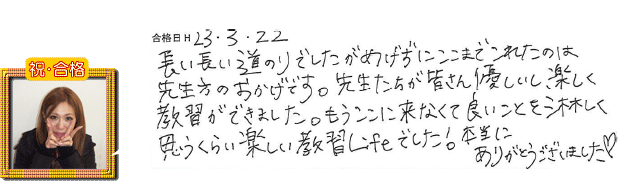 合格日H 23.3.22
祝・合格
長い長い道のりでしたがめげずにここまでこれたのは
先生方のおかげです。先生たちが皆さん優しいし、楽しく
教習ができました。もうここに来なくて良いことを淋しく
思うくらい楽しい教習Lifeでした！本当に
ありがとうございました♡